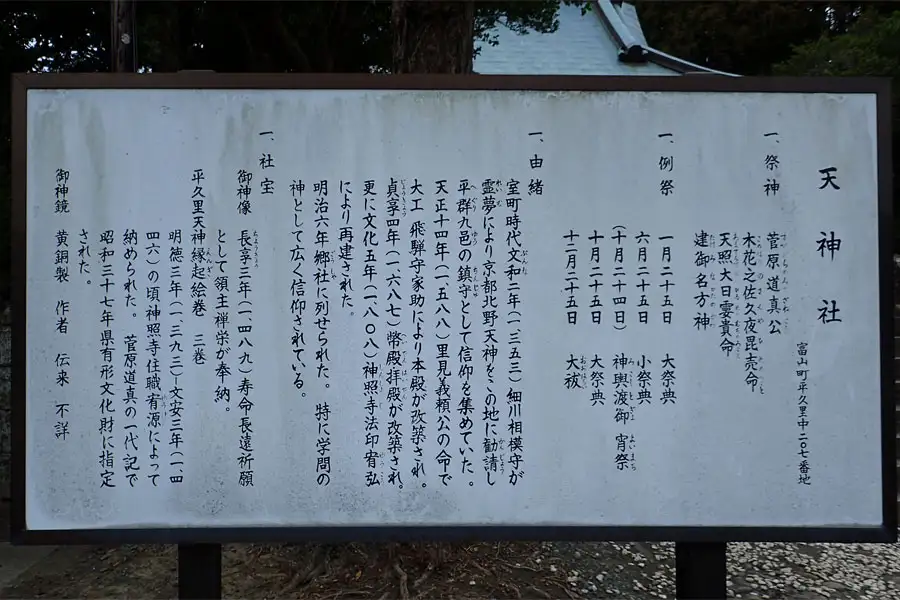 天神社
富山町平久里中二〇七番地
一、祭神
菅原道真公
木花之佐久夜毘売命
天照大日孁貴命
建御名方神
一、例祭
一月二十五日 大祭典
六月二十五日 小祭典
(十月二十四日) 神輿渡御 宵祭
十月二十五日 大祭典
十二月二十五日 大祓
一、由緒
室町時代文和二年(一、三五三)細川相模守が
霊夢により京都北野天神をこの地に勧請し
平群九邑の鎮守として信仰を集めていた。
天正十四年(一、五八八)里見義頼公の命で
大工 飛騨守家助により本殿が改築され。
貞享四年(一、六八七)幣殿拝殿が改築され。
更に文化五年(一、八〇八)神照寺法印宥弘
により再建された。
明治六年郷社に列せられた。 特に学問の
神として広く信仰されている。
一、社宝
御神像 長享三年(一、四八九)寿命長遠祈願
として領主禅崇が奉納。
平久里天神縁起絵巻 三巻
明徳三年(一、三九二)−文安三年(一、四
四六)の頃神照寺住職宥源によって
納められた。 菅原道真の一代記で
昭和三十七年県有形文化財に指定
された。
御神鏡 黄銅製 作者 伝来 不詳